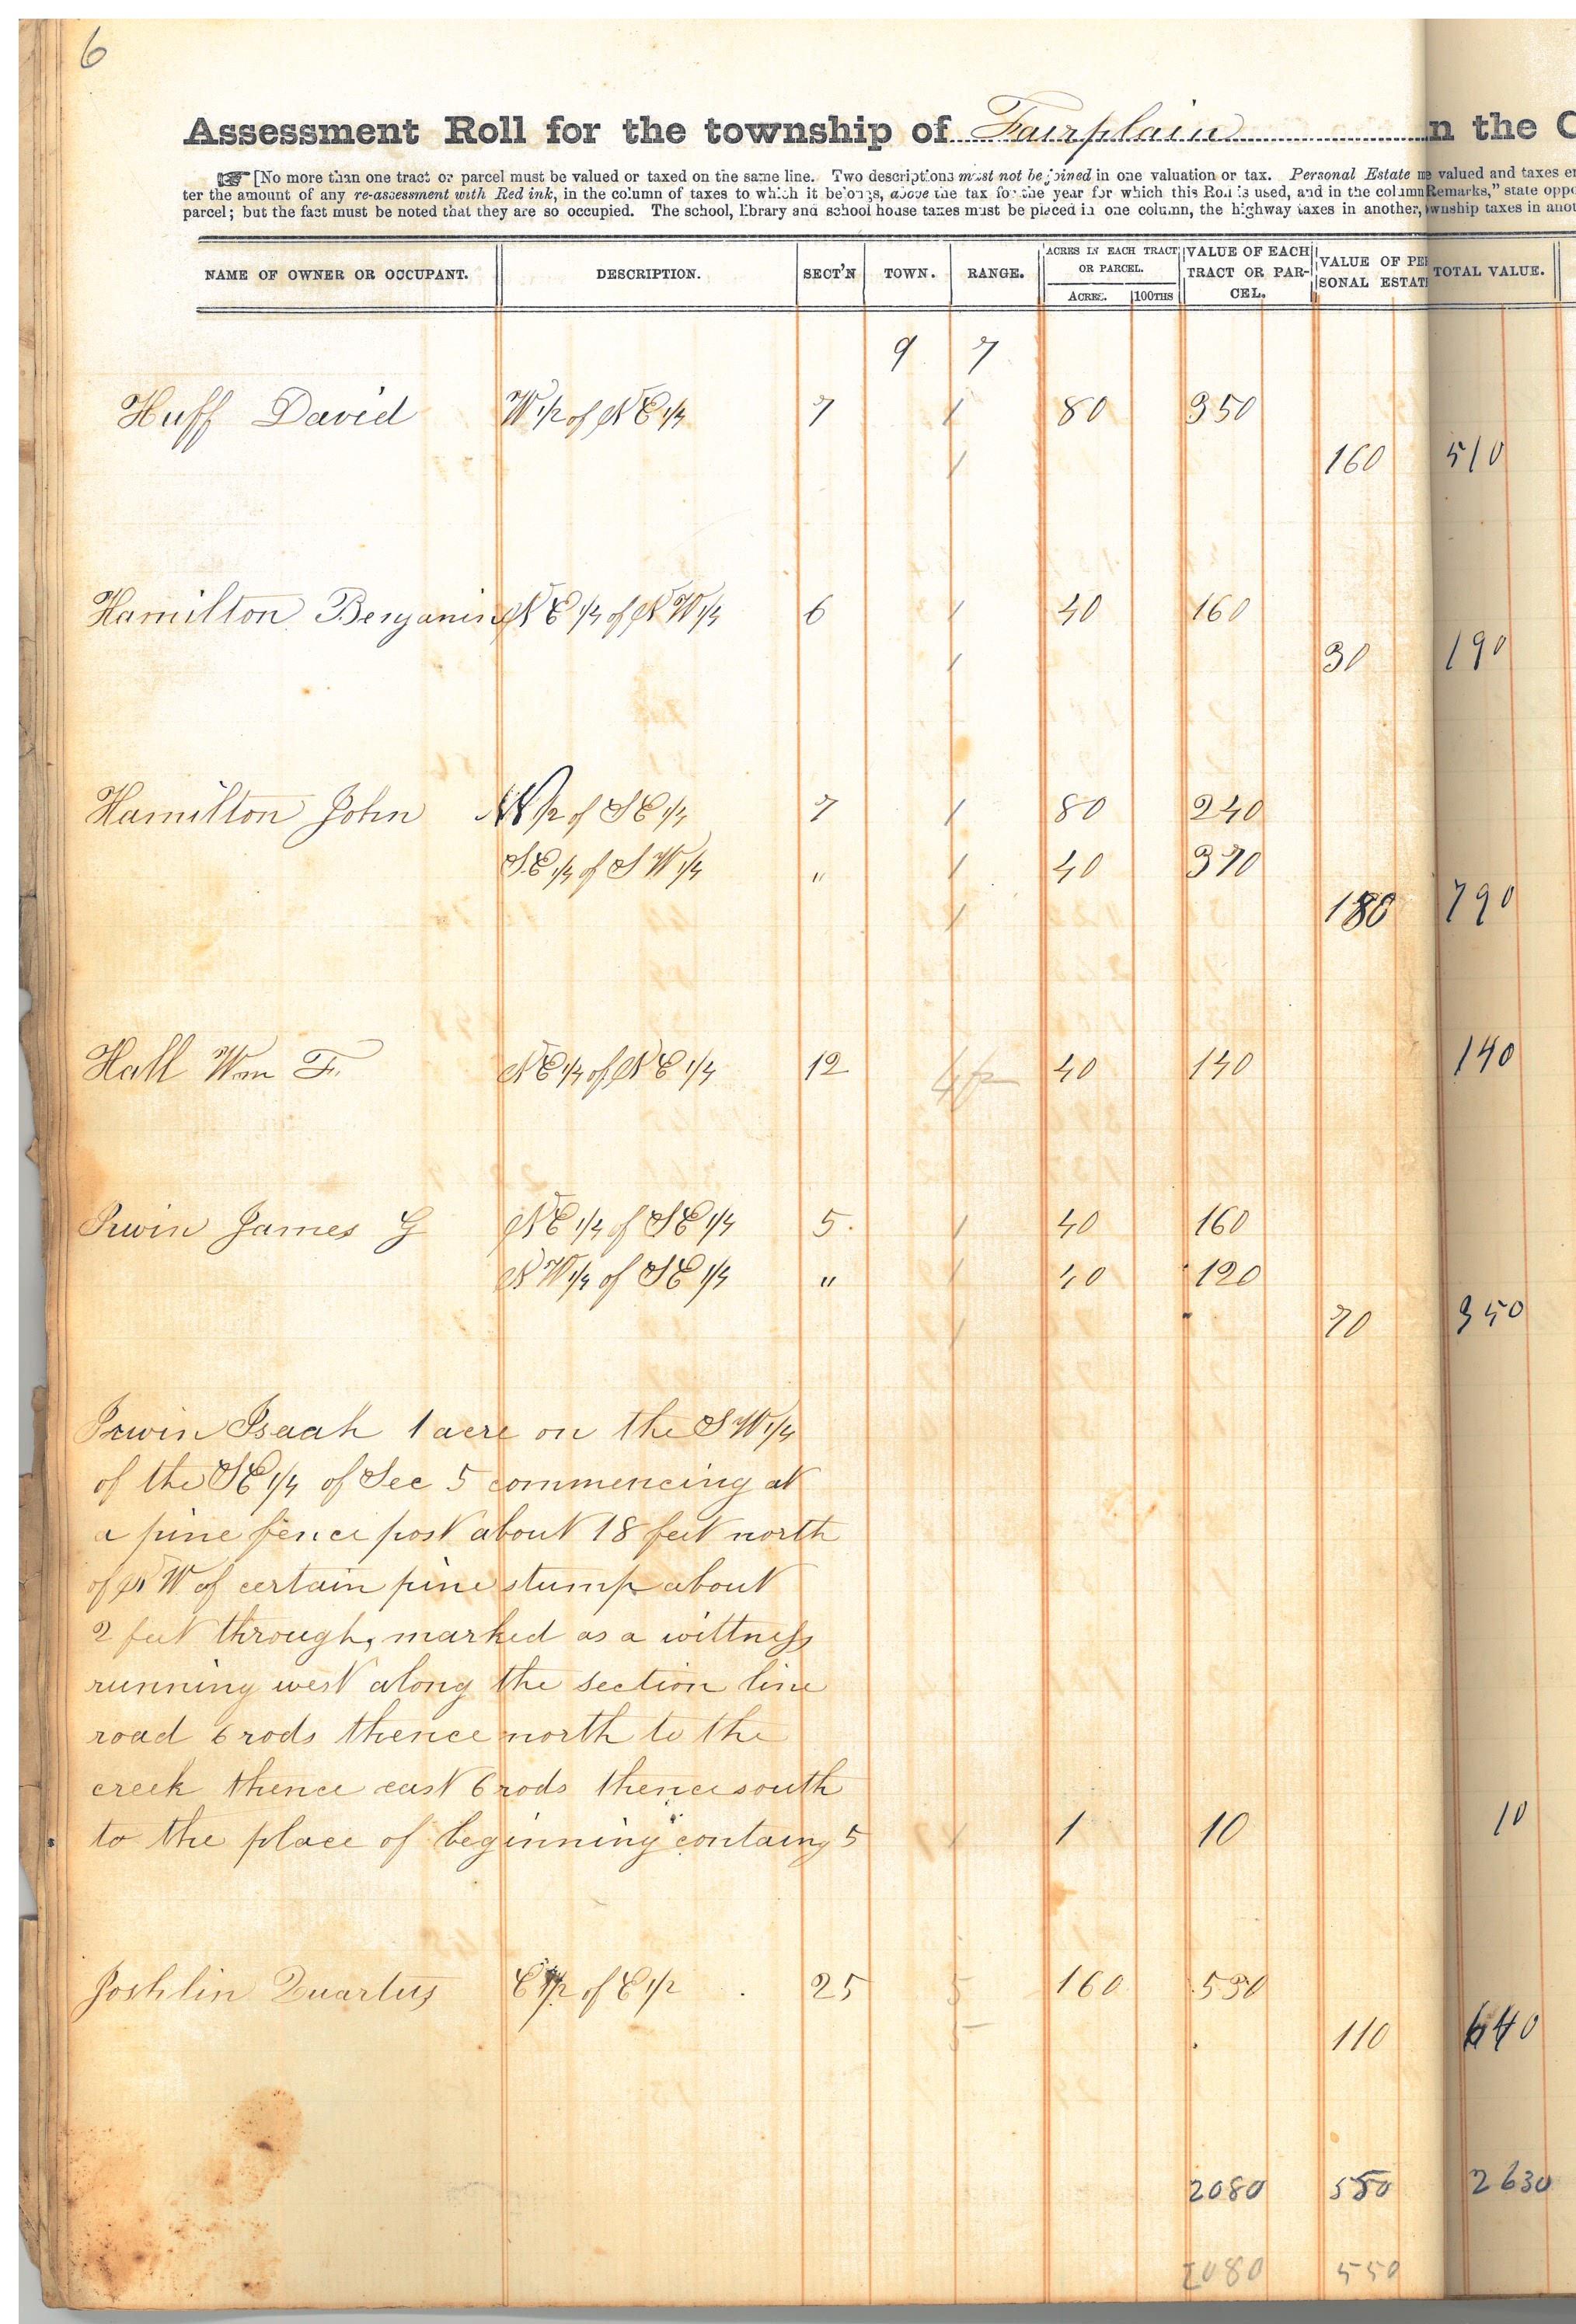 6
Assessment Roll for the township of Fairplain n the C
[No more than one tract or parcel must be valued or taxed on the same line. Two descriptions must not be joined in one valuation or tax. Personal Estate valued and taxes en
ter the amount of any re-assessment with Red ink, in the column of taxes to which it belongs, above the tax for the year for which this Roll is used, and in the column Remarks," state oppo
parcel; but the fact must be noted that they are so occupied. The school, library and school house taxes must be placed in one column, the highway taxes in another, wnship taxes in anot
NAME OF OWNER OR OCCUPANT. DESCRIPTION. SECT'N TOWN. RANGE. ACRES IN EACH TRACT OR PARCEL. ACRES. 100THS VALUE OF EACH TRACT OR PARCEL. VALUE OF PE SONAL ESTAT TOTAL VALUE.
9 7
Huff David W 1/2 of N E 1/4 7 1 80 350
1 160 510
Hamilton Benjamin N E 1/4 of N W 1/4 6 1 40 160
1 30 190
Hamilton John N 1/2 of S E 1/4 7 1 80 240
S E 1/4 of S W 1/4 " 1 40 370
1 180 790
Hall Wm F. N E 1/4 of N E 1/4 12 40 140 140
Irwin James G N E 1/4 of S E 1/4 5 1 40 160
N W 1/4 of S E 1/4 " 1 40 120
1 70 350
Irwin Isaah 1 acre on the S W 1/4
of the S E 1/4 of Sec 5 commencing at
a pine fence post about 18 feet north
of N W of certain pine stump about
2 feet through, marked as a wittness
running west along the section line
road 6 rods thence north to the
creek thence east 6 rods thence south
to the place of beginning containg 5 1 1 10 10
Joshlin Quartus E 1/2 of E 1/2 25 5 160 530
5 110 640
2080 550 2630
2080 550